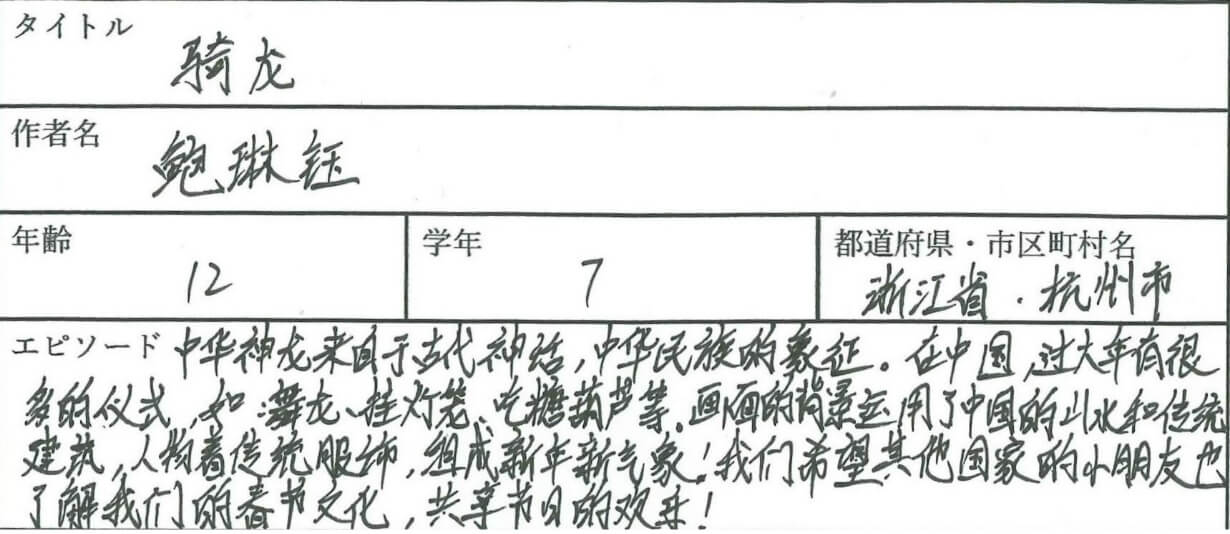 タイトル
骑龙
作者名
鲍琳钰
年齢
12
学年
7
都道府県・市区町村名
浙江省.杭州市
エピソード 中华神龙来自于古代神话,中华民族的象征。在中国,过大年有很
多的仪式,如:舞龙、挂灯笼、吃糖葫芦等。画面的背景运用了中国的山水和传统
建筑,人物着传统服饰,组成新年新气象!我们希望其他国家的小朋友也
了解我们的春节文化,共享节日的欢乐!